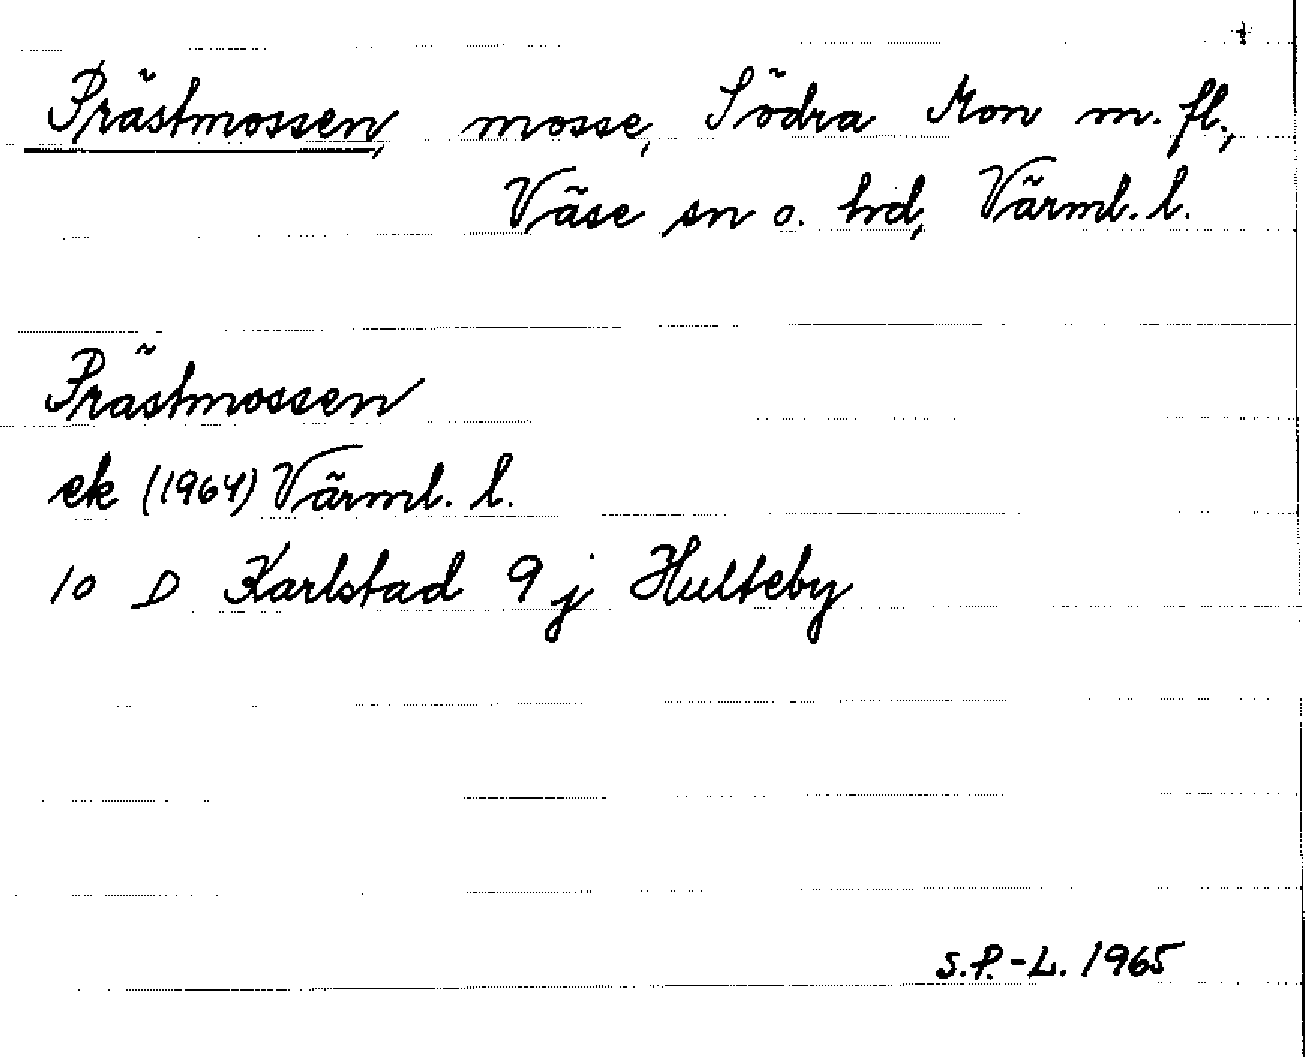 Prästmossen, mosse, Södra Mon m. fl.,
Väse sn o. hd, Värml. l.
Prästmossen
ek (1964) Värml. l.
10 D Karlstad 9 j Hulteby
S.P.-L. 1965